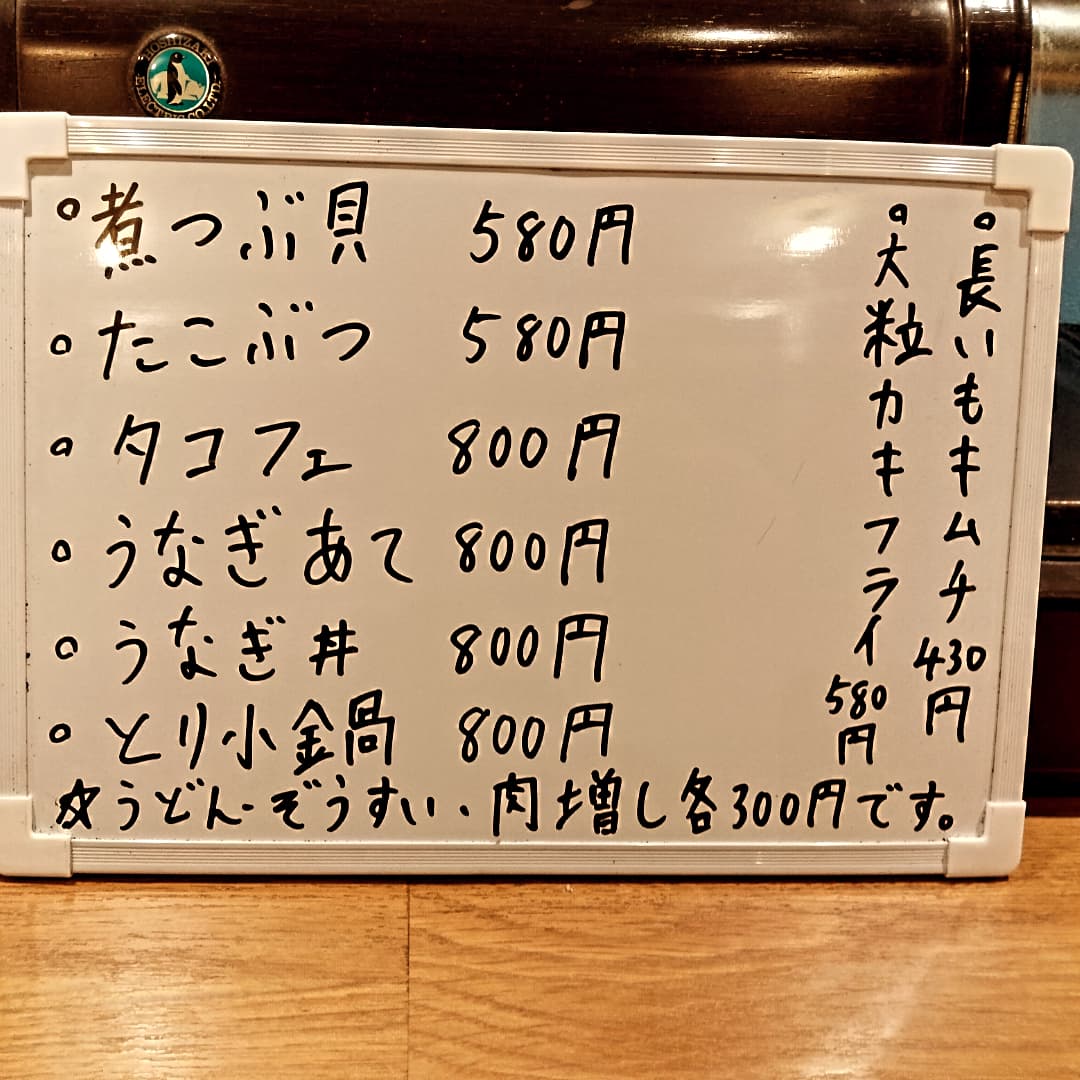 HOSHIZAKI ELECTRIC CO.,LTD.
。煮つぶ貝 580円
。たこぶつ 580円
。タコフェ 800円
。うなぎあて 800円
。うなぎ丼 800円
。とり小鍋 800円
☆うどん・ぞうすい・肉増し各300円です。
。長いもキムチ430円
。大粒カキフライ580円